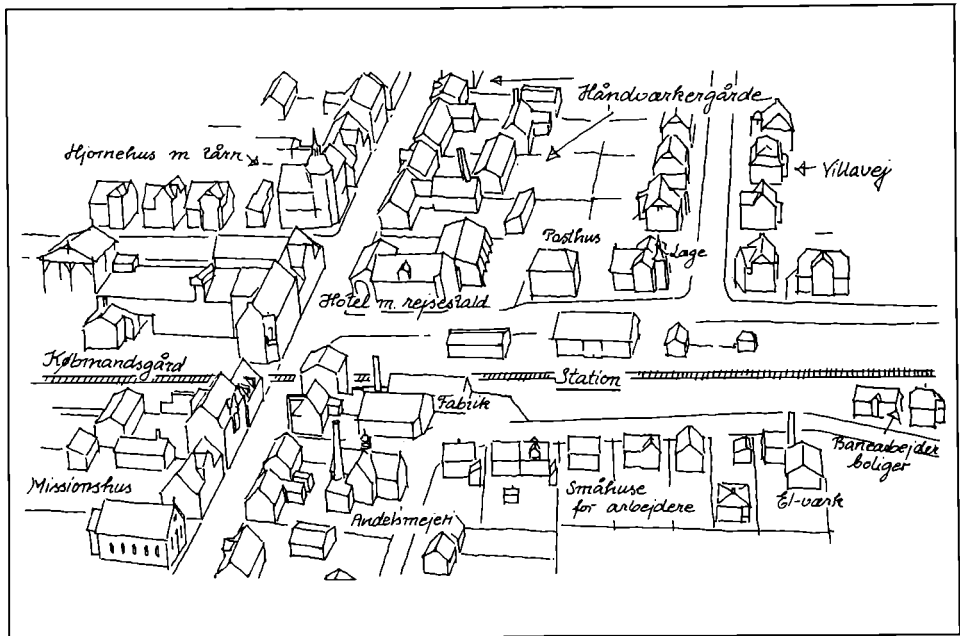 Håndværkergårde
Hjørnehus m tårn
Villavej
Posthus
Læge
Hotel m. rejsestald
Købmandsgård
Station
Fabrik
Banearbejder
boliger
Missionshus
Småhuse
for arbejdere
El-værk
Andelsmejeri